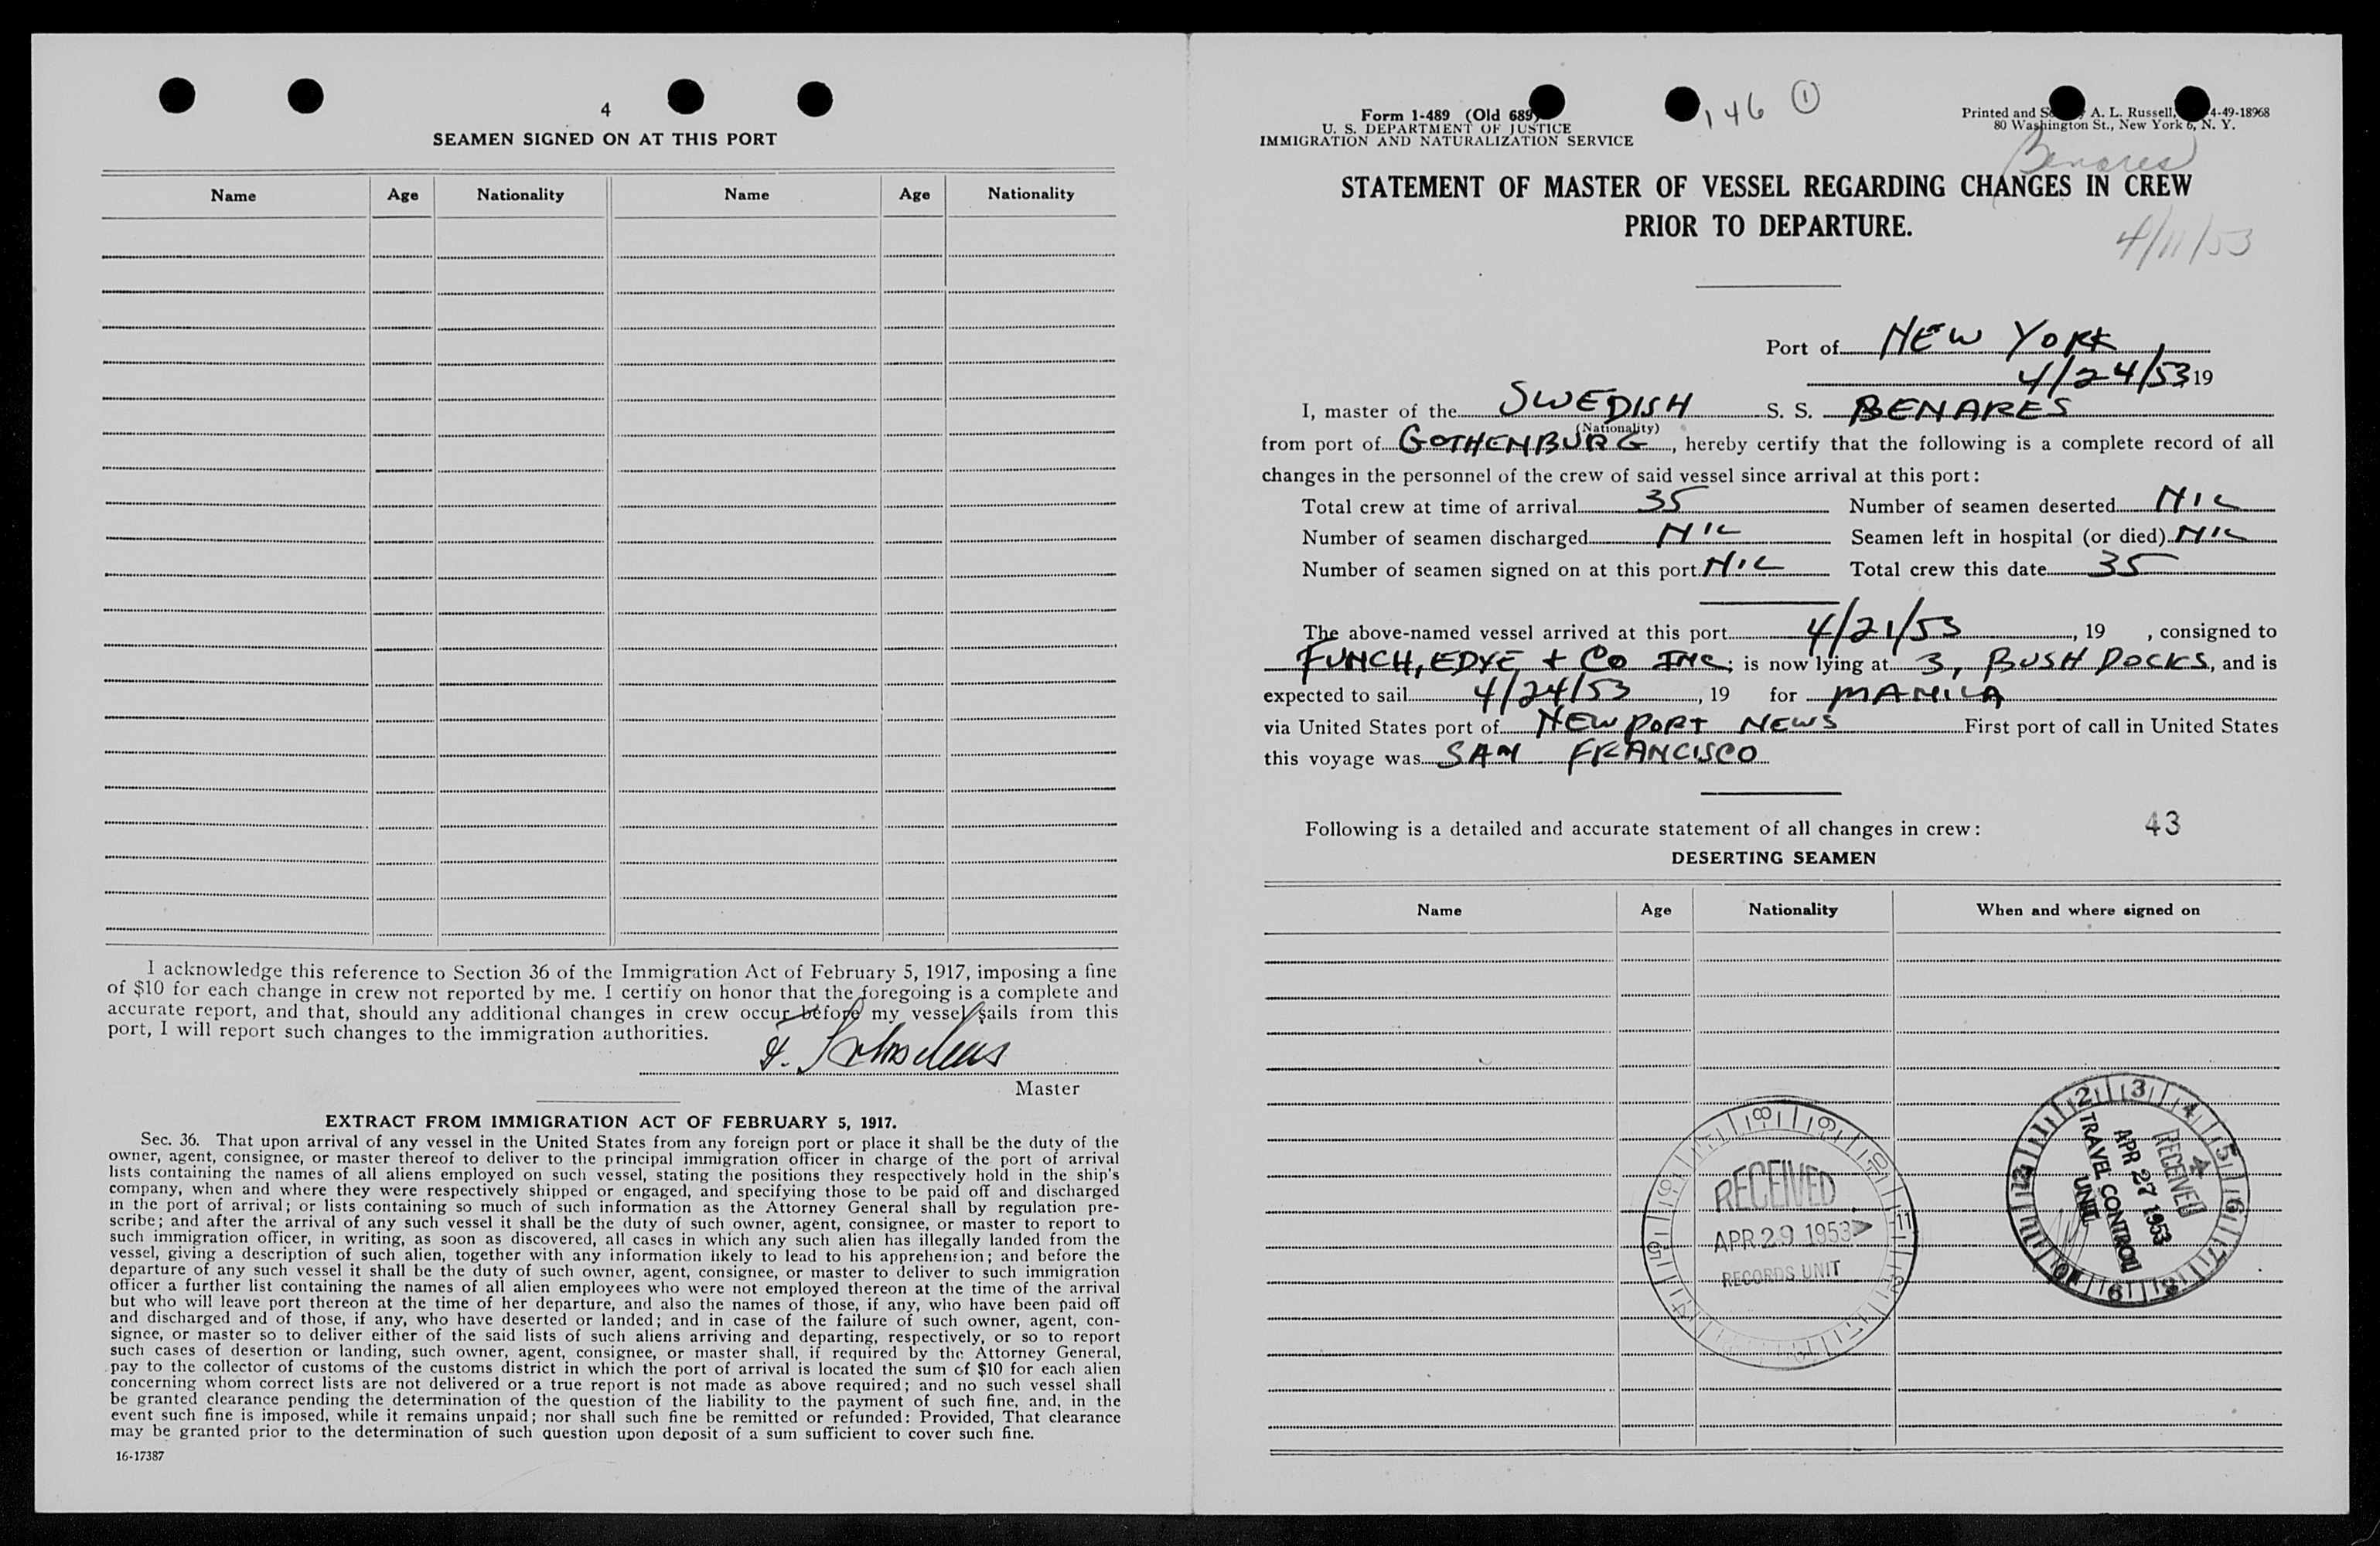 4
SEAMEN SIGNED ON AT THIS PORT
Name Age Nationality Name Age Nationality
I acknowledge this reference to Section 36 of the Immigration Act of February 5, 1917, imposing a fine
of $10 for each change in crew not reported by me. I certify on honor that the foregoing is a complete and
accurate report, and that, should any additional changes in crew occur before my vessel sails from this
port, I will report such changes to the immigration authorities.
Master
EXTRACT FROM IMMIGRATION ACT OF FEBRUARY 5, 1917.
Sec. 36. That upon arrival of any vessel in the United States from any foreign port or place it shall be the duty of the
owner, agent, consignee, or master thereof to deliver to the principal immigration officer in charge of the port of arrival
lists containing the names of all aliens employed on such vessel, stating the positions they respectively hold in the ship's
company, when and where they were respectively shipped or engaged, and specifying those to be paid off and discharged
in the port of arrival; or lists containing so much of such information as the Attorney General shall by regulation pre-
scribe; and after the arrival of any such vessel it shall be the duty of such owner, agent, consignee, or master to report to
such immigration officer, in writing, as soon as discovered, all cases in which any such alien has illegally landed from the
vessel, giving a description of such alien, together with any information likely to lead to his apprehension; and before the
departure of any such vessel it shall be the duty of such owner, agent, consignee, or master to deliver to such immigration
officer a further list containing the names of all alien employees who were not employed thereon at the time of the arrival
but who will leave port thereon at the time of her departure, and also the names of those, if any, who have been paid off
and discharged and of those, if any, who have deserted or landed; and in case of the failure of such owner, agent, con-
signee, or master so to deliver either of the said lists of such aliens arriving and departing, respectively, or so to report
such cases of desertion or landing, such owner, agent, consignee, or master shall, if required by the Attorney General,
pay to the collector of customs of the customs district in which the port of arrival is located the sum of $10 for each alien
concerning whom correct lists are not delivered or a true report is not made as above required; and no such vessel shall
be granted clearance pending the determination of the question of the liability to the payment of such fine, and, in the
event such fine is imposed, while it remains unpaid; nor shall such fine be remitted or refunded: Provided, That clearance
may be granted prior to the determination of such question upon deposit of a sum sufficient to cover such fine.
16-17387
146 1
Form 1-489 (Old 689)
U. S. DEPARTMENT OF JUSTICE
IMMIGRATION AND NATURALIZATION SERVICE
Printed and A. L. Russell, 4-49-18968
80 Washington St., New York 6, N. Y.
Benares
STATEMENT OF MASTER OF VESSEL REGARDING CHANGES IN CREW
PRIOR TO DEPARTURE.
4/11/53
Port of NEW YORK
4/24/53 19
I, master of the SWEDISH S. S. BENARES
(Nationality)
from port of GOTHENBURG, hereby certify that the following is a complete record of all
changes in the personnel of the crew of said vessel since arrival at this port:
Total crew at time of arrival 35 Number of seamen deserted NIL
Number of seamen discharged NIL Seamen left in hospital (or died) NIL
Number of seamen signed on at this port NIL Total crew this date 35
The above-named vessel arrived at this port 4/21/53, 19 , consigned to
FUNCH, EDYE + CO INC; is now lying at 3, BUSH DOCKS, and is
expected to sail 4/24/53, 19 for MANILA
via United States port of NEWPORT NEWS First port of call in United States
this voyage was SAN FRANCISCO
Following is a detailed and accurate statement of all changes in crew: 43
DESERTING SEAMEN
Name Age Nationality When and where signed on
RECEIVED
APR 29 1953
RECORDS UNIT
RECEIVED
4
APR 27 1953
TRAVEL CONTROL
UNIT